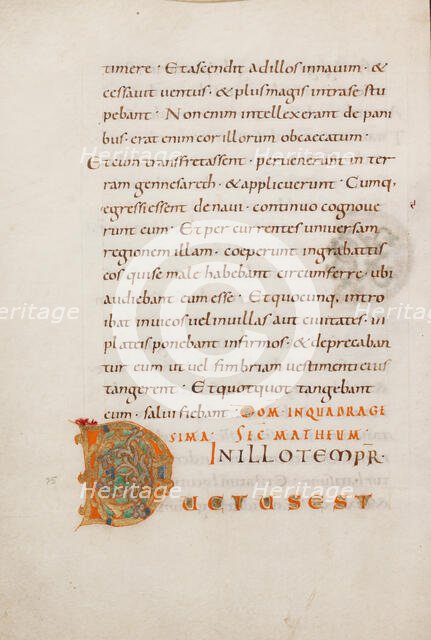 timere · Et ascendit ad illos in navim · &
cessavit ventus · & plus magis intra se stu
pebant · Non enim intellexerant de pani
bus · erat enim cor illorum obcaecatum ·
Et cum transfretassent · pervenerunt in ter
ram gennesareth · & applicuerunt · Cumq;
egressi essent de navi · continuo cognove
runt eum · Et per currentes universam
regionem illam · coeperunt in grabattis
eos qui se male habebant circumferre · ubi
audiebant eum esse · Et quocunq; intro
ibat in vicos vel in villas aut civitates · in
plateis ponebant infirmos · & deprecaban
tur eum ut vel fimbriam vestimenti eius
tangerent · Et quotquot tangebant
eum · salvi fiebant · DOM · IN QUADRAGE
SIMA · SEC MATHEUM ·
IN ILLO TEMPR
DUCTUS EST
75
Heritage
Heritage
Heritage
Heritage
Heritage
Heritage